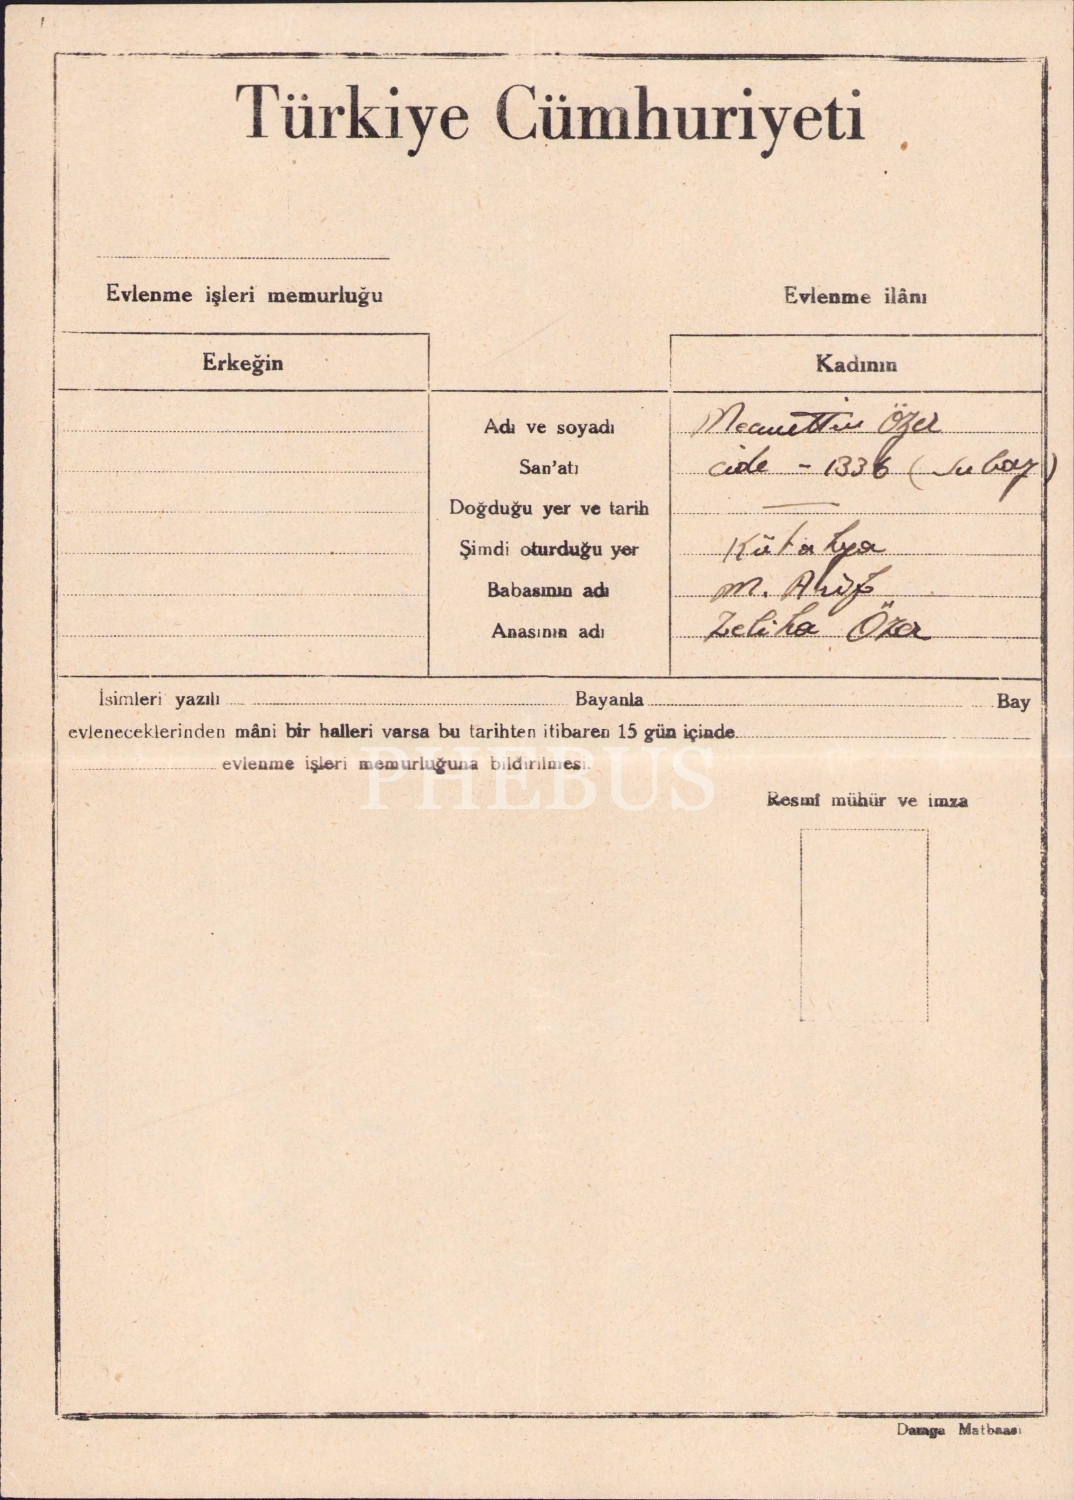 Türkiye Cümhuriyeti
Evlenme işleri memurluğu
Evlenme ilânı
Erkeğin
Kadının
Adı ve soyadı Özer
San'atı cide - 1336 (Subay)
Doğduğu yer ve tarih —
Şimdi oturduğu yer Kütahya
Babasının adı M. Arif
Anasının adı Zeliha Özer
İsimleri yazılı Bayanla Bay
evleneceklerinden mâni bir halleri varsa bu tarihten itibaren 15 gün içinde
evlenme işleri memurluğuna bildirilmesi.
PHEBUS
Resmî mühür ve imza
Matbaası